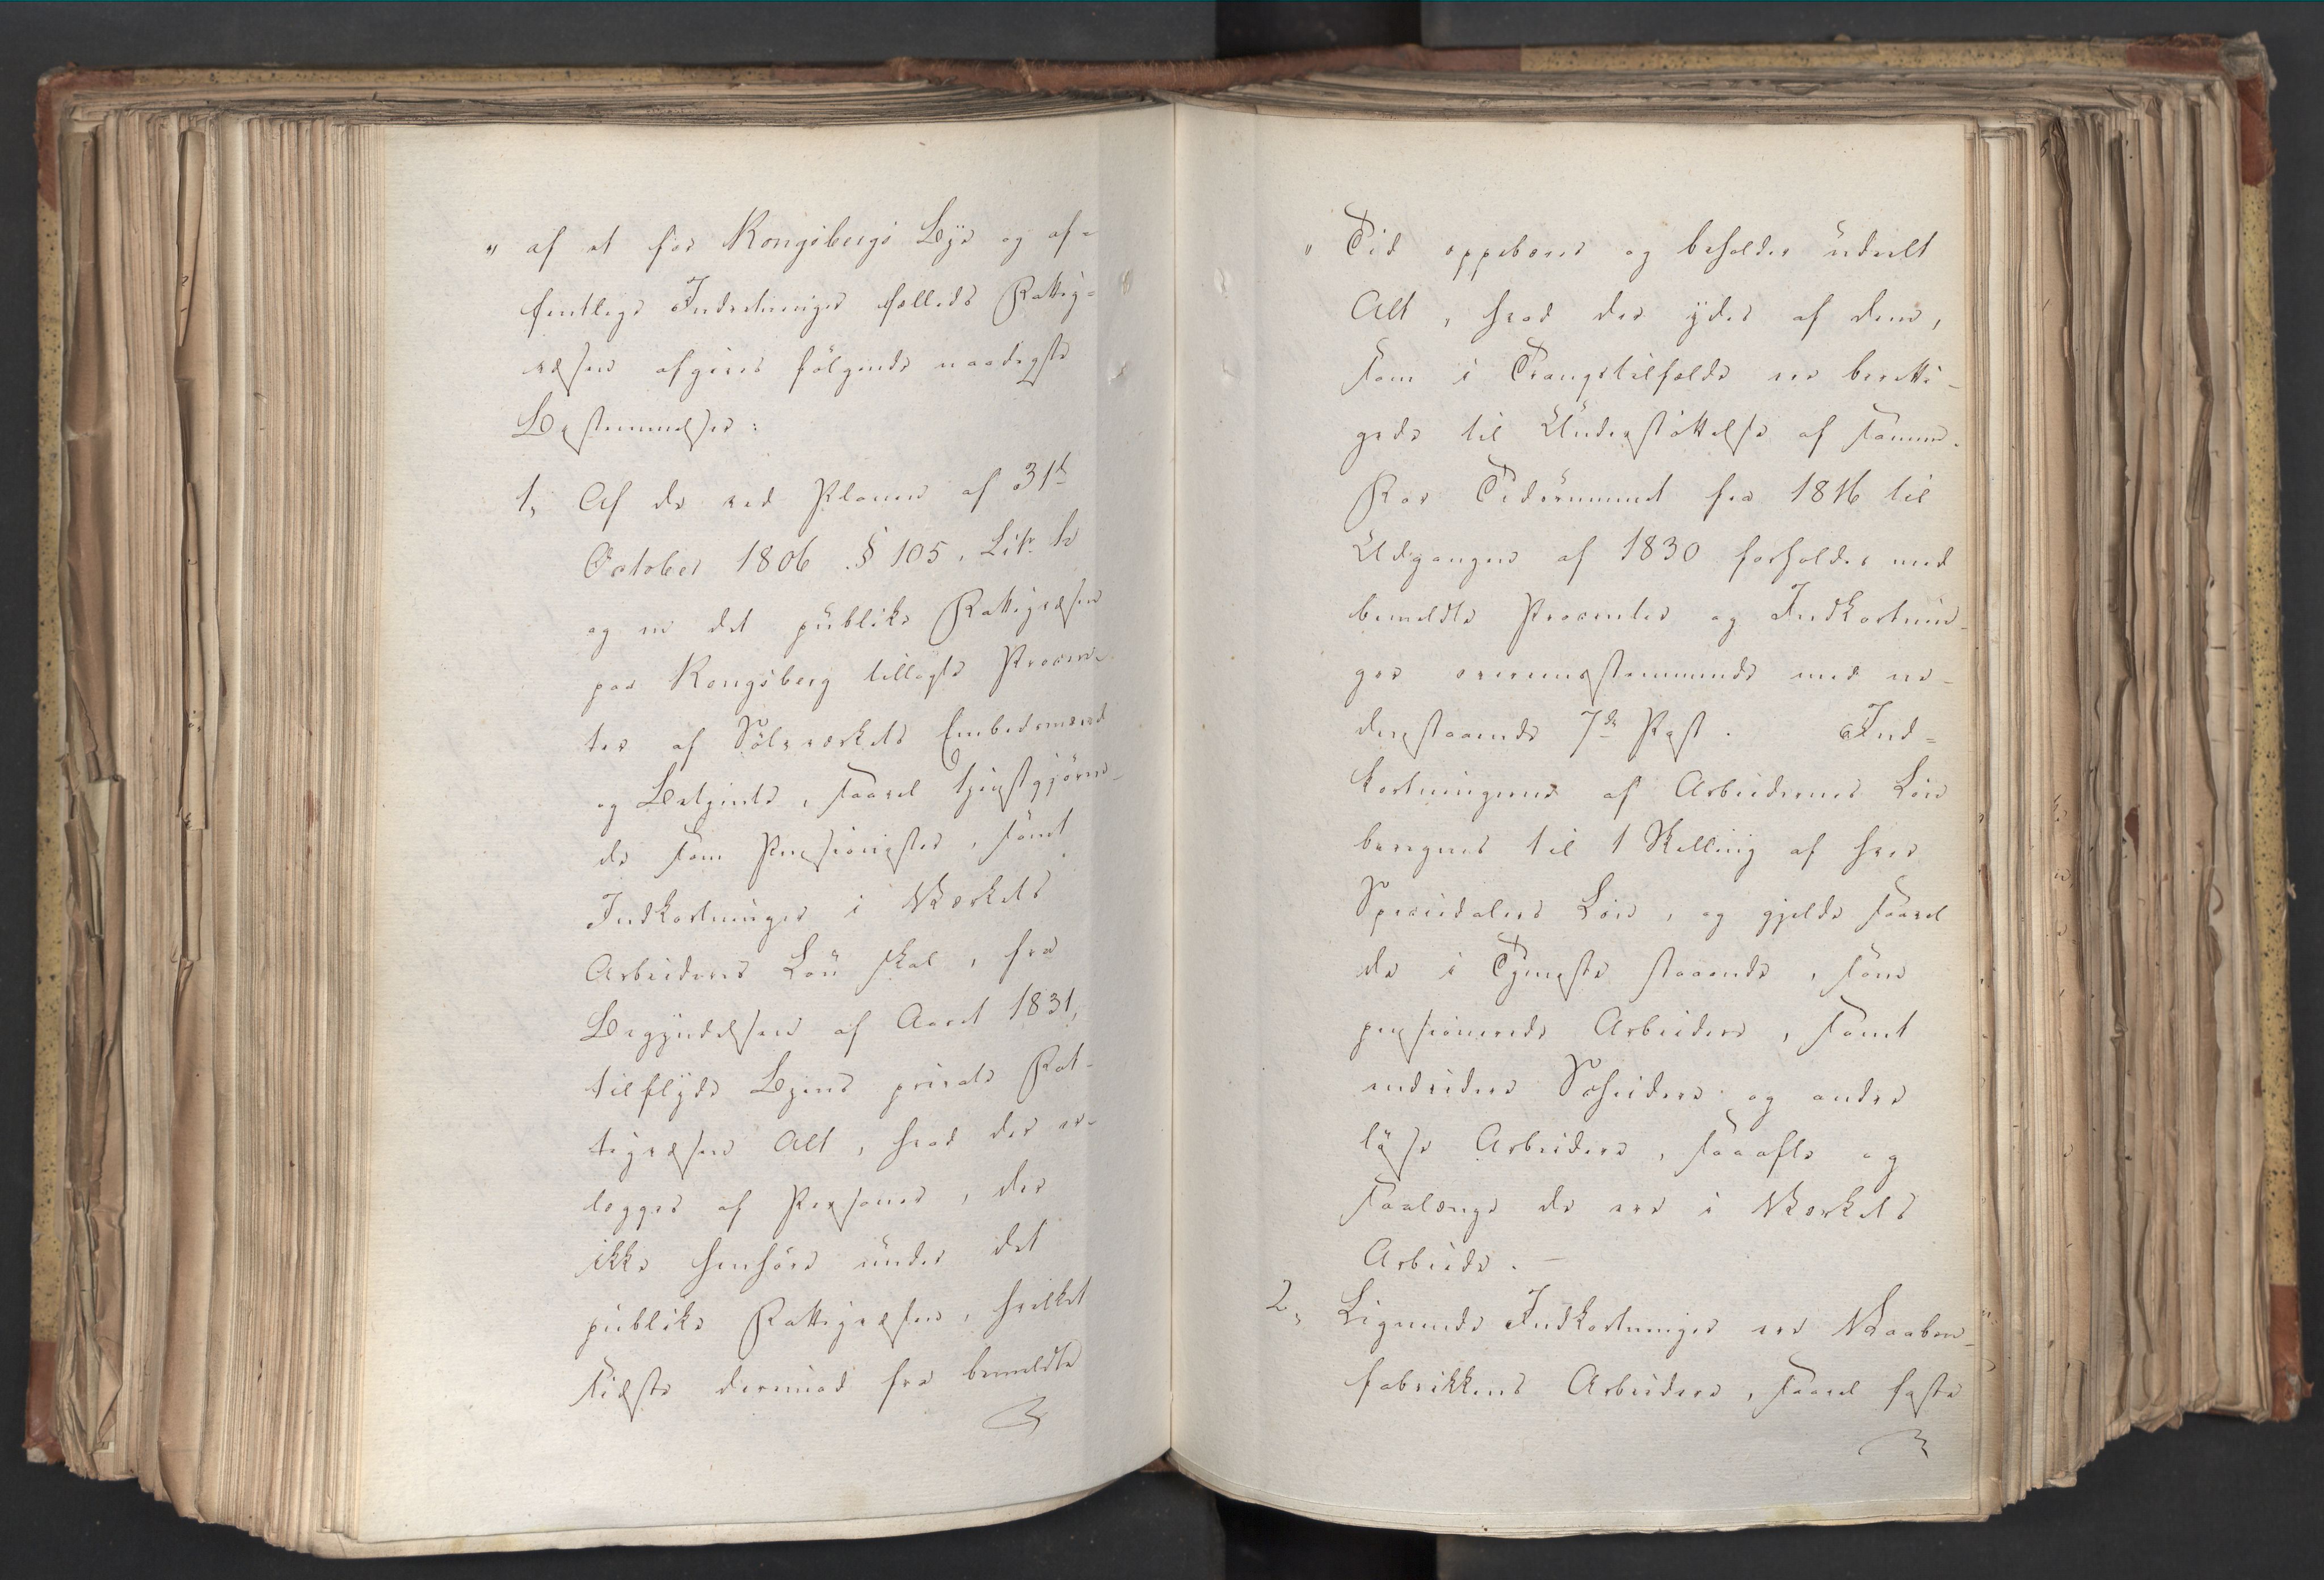 „ af et for Kongsbergs Bye og of-
fentlige Indretninger fælleds Fattig-
væsen afgives følgende naadigste
Bestemmelser:
1, Af de ved Planen af 31te
October 1806 § 105, Litr. h
og m det publike Fattigvæsen
paa Kongsberg tillagte Procen-
ter af Sölvværkets Embedsmænd
og Betjente, saavel tjenstgjören-
de som Pensionister, samt
Indkortninger i Værkets
Arbeideres Lön skal, fra
Begyndelsen af Aaret 1831,
tilflyde Byens private Fat-
tigvæsen Alt, hvad der er-
lægges af Personer, der
ikke henhöre under det
publike Fattigvæsen, hvilket
sidste derimod fra bemeldte
„ Tid oppebærer og beholder udeelt
Alt, hvad der ydes af dem,
som i Trangstilfælde ere beretti-
gede til Understöttelse af samme.
For Tidsrummet fra 1816 til
Udgangen af 1830 forholdes med
bemeldte Procenter og Indkortnin-
ger overeensstemmende med ne-
denstaaende 7de Post. Ind-
kortningerne af Arbeidernes Lön
beregnes til 1 Skilling af hver
Speciedalers Lön, og gjelde saavel
de i Tjeneste staaende, som
pensionerede Arbeidere, samt
endvidere Scheidere og andre
löse Arbeidere, saaofte og
saalænge de ere i Værkets
Arbeide. —
2, Lignende Indkortninger ere Vaaben-
fabrikkens Arbeidere, saavel faste